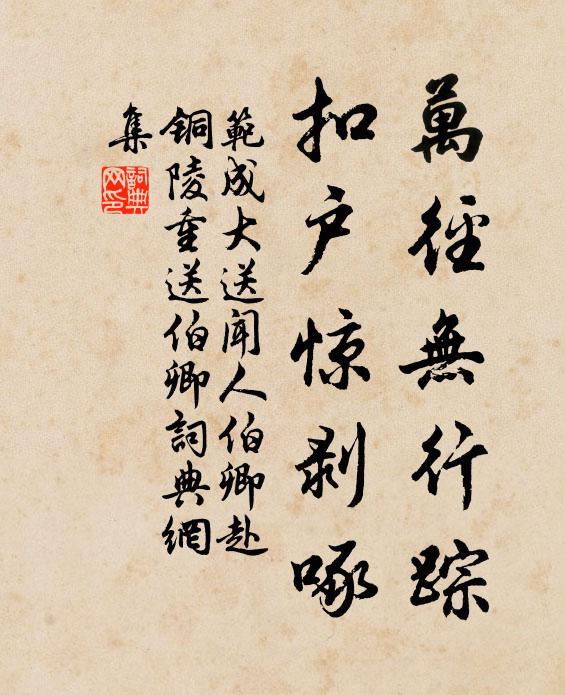 萬徑無行踪
扣户惊剥啄
範成大送聞人伯卿赴
铜陵重送伯卿詞典網
集
詞典
网印